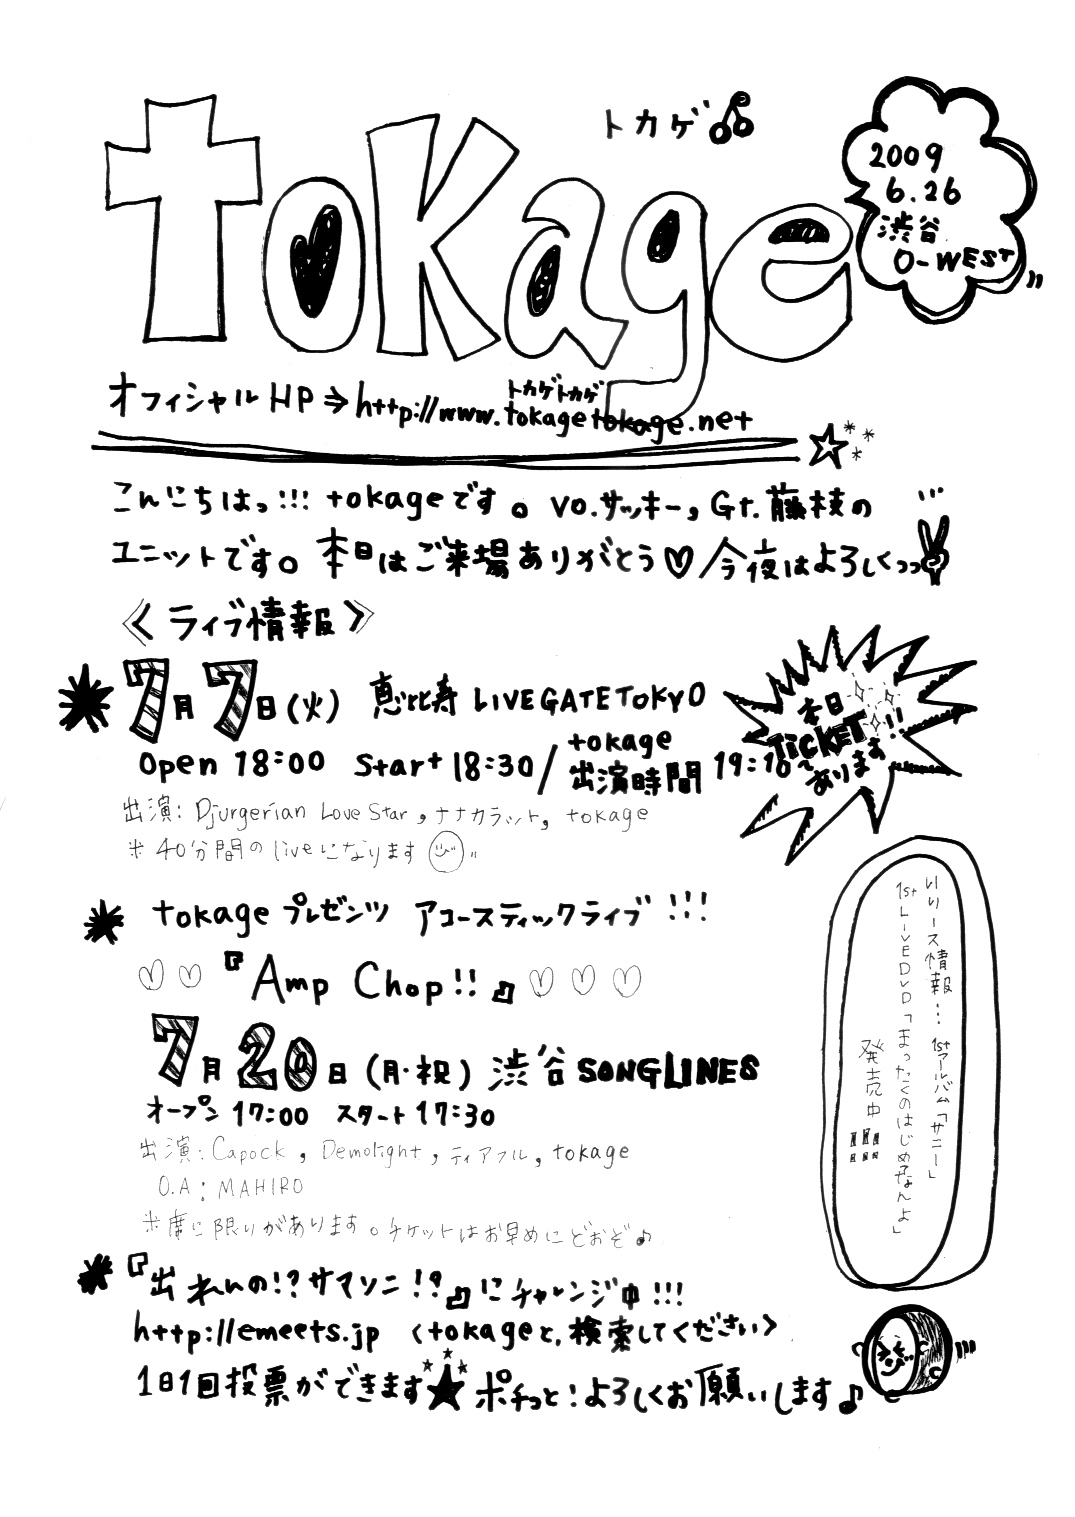 tokage
トカゲ
2009
6.26
渋谷
O-WEST
オフィシャルHP⇒http://www.tokagetokage.net
トカゲトカゲ
こんにちはっ!!! tokageです。vo.サッキー,Gt.藤枝の
ユニットです。本日はご来場ありがとう♡/今夜はよろしくっっ
《ライブ情報》
7月7日(火) 恵比寿 LIVE GATE TOKYO
Open 18:00 Start 18:30/tokage出演時間 19:10~
本日
TiCKET
あります!!
出演:Djurgerian Love Star,ナナカラット,tokage
※40分間のliveになります
tokageプレゼンツ アコースティックライブ!!!
♡♡『Amp Chop!!』♡♡♡
7月20日(月・祝) 渋谷 SONGLINES
オープン 17:00 スタート 17:30
出演:Capock,Demolight,ティアフル,tokage
O.A:MAHIRO
※席に限りがあります。チケットはお早めにどおぞ♪
リリース情報… 1stアルバム「サニー」
1st LiVE DVD「まったくのはじめなんよ」
発売中!!!
『出れんの!?サマソニ!?』にチャレンジ中!!!
http://emeets.jp 〈tokageと,検索してください〉
1日1回投票ができます★ポチっと!よろしくお願いします♪